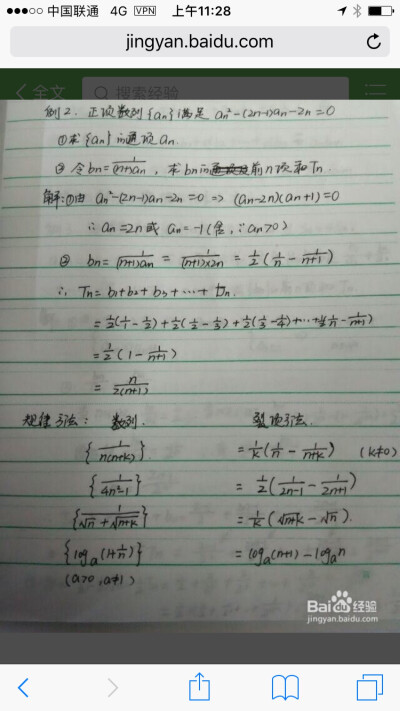 中国联通 4G VPN 上午11:28
jingyan.baidu.com
全文 搜索经验
例2. 正项数列{an}满足 an²-(2n-1)an-2n=0
①求{an}的通项an.
② 令bn=1/(n+1)an, 求bn的前n项和Tn.
解:①由 an²-(2n-1)an-2n=0 => (an-2n)(an+1)=0
∴ an=2n或 an=-1(舍,∵an>0)
② bn=1/(n+1)an = 1/(n+1)×2n = 1/2(1/n-1/(n+1))
∴ Tn=b1+b2+b3+…+bn.
=1/2(1/1-1/2)+1/2(1/2-1/3)+1/2(1/3-1/4)+…+1/2(1/n-1/(n+1))
=1/2(1-1/(n+1))
= n/2(n+1)
规律引法: 数列. 裂项引法.
{1/n(n+k)} =1/k(1/n-1/(n+k)) (k≠0)
{1/(4n²-1)} = 1/2(1/(2n-1)-1/(2n+1))
{1/(√n+√(n+k))} =1/k(√(n+k)-√n).
{loga(1+1/n)} =loga(n+1)-logan
(a>0,a≠1)
Baidu经验
jingyan.baidu.com